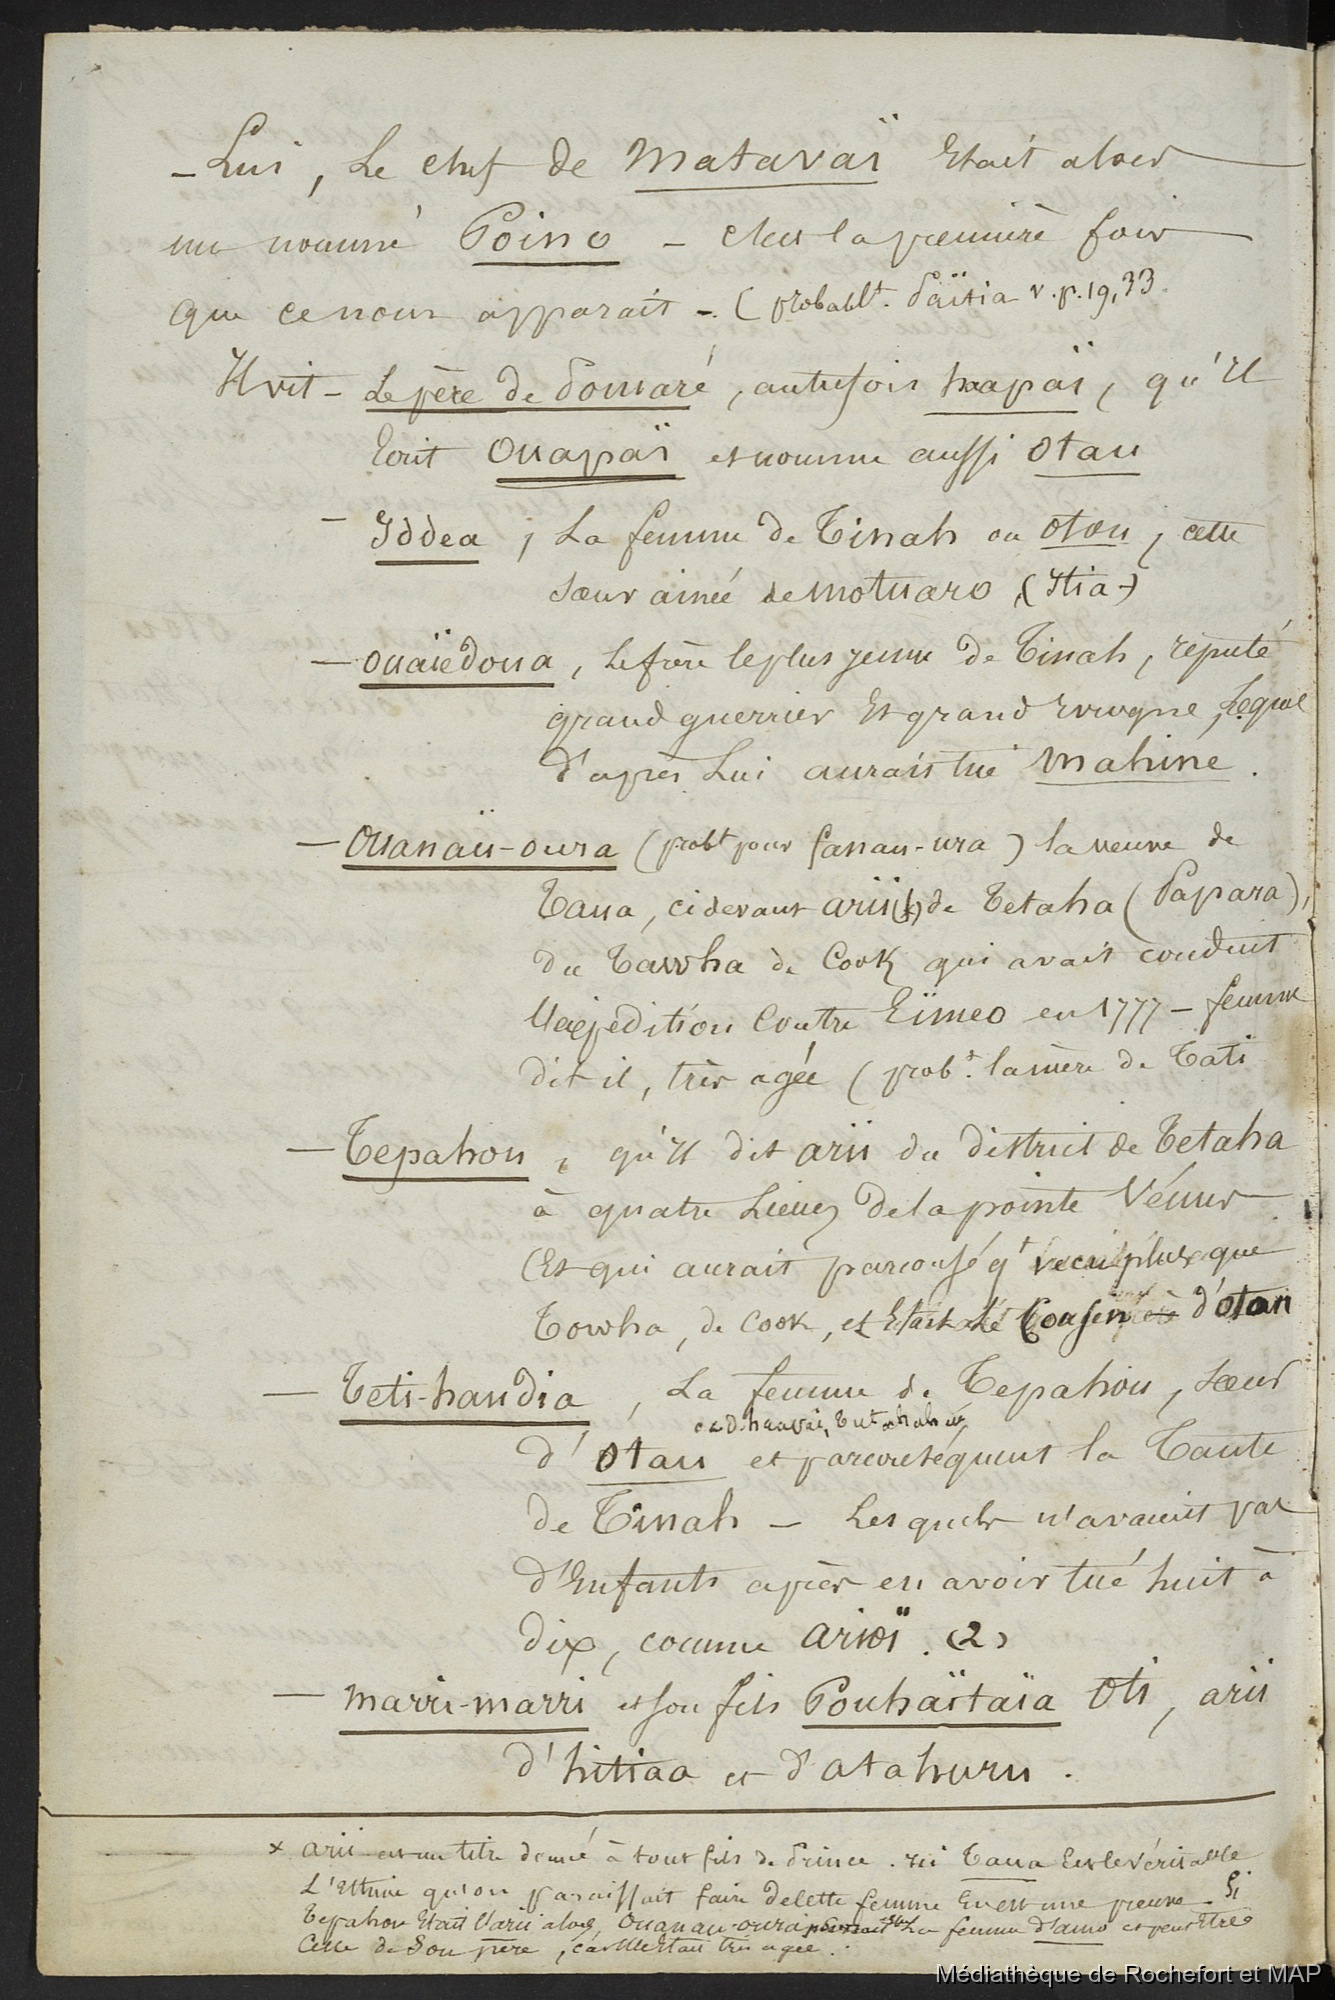 – Lui, le chef de Matavaï était alors
un nommé Poino – c'est la première fois
que ce nom apparait – (probablt. Païtia v. p. 19, 33.
Il vit – Le père de Pomaré, autrefois hapaï, qu'il
écrit Ouapaï et nomme aussi Otau
– Iddea, la femme de Tinah ou Otou, cette
sœur ainée de Motuaro (Itia –)
– Ouaïedoua, le frère le plus jeune de Tinah, réputé
grand guerrier et grand ivrogne, lequel
d'après lui aurait tué Mahine.
– Ouanaü-oura (probt pour fanau-ura) la veuve de
Taua, cidevant arii de Tetaha (Papara),
du Tawha de Cook qui avait conduit
l'expédition contre Eïmeo en 1777 – femme
dit il, très agée (probt. la mère de Tati
– Tepahou, qu'il dit arii du district de Tetaha
à quatre lieues de la pointe Vénus
(Et qui aurait par conséqt vécu plus que
Towha, de Cook, et était le d'otau
– Teti-haudia, la femme de Tepahou, sœur
d'Otau et par conséquent la Tante
de Tinah – lesquels n'avaient pas
d'enfants après en avoir tué huit à
dix, comme arioï. (2)
– Marri-marri et son fils Pouhaïtaïa Oti, arii
d'hitiaa et d'atahuru.
x Arii est un titre donné à tout fils de Prince. ici Taua est le véritable
L'estime qu'on paraissait faire de cette femme en est une preuve – Si
Tepahou était l'arii alors, Ouanau-oura la femme d'amo et peut être
celle de son père, car elle était très agée.
Médiathèque de Rochefort et MAP